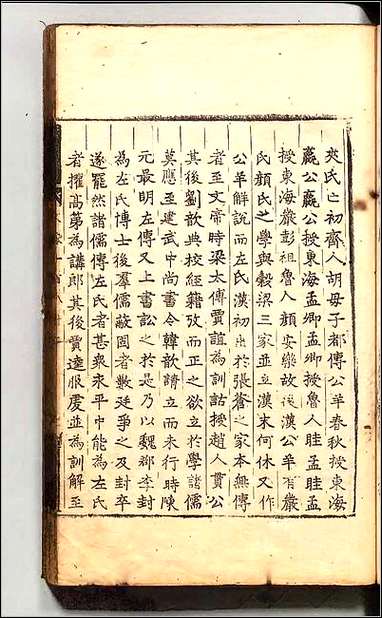 夾氏亡初齊人胡母子都傳公羊春秋授東海
嬴公嬴公授東海孟卿孟卿授魯人眭孟眭孟
授東海嚴彭祖魯人顏安樂故後漢公羊有嚴
氏顏氏之學與穀梁三家並立漢末何休又作
公羊解說而左氏漢初出於張蒼之家本無傳
者至文帝時梁太傅賈誼為訓詁授趙人貫公
其後劉歆典校經籍攷而正之欲立於學諸儒
莫應至建武中尚書令韓歆請立而未行時陳
元最明左傳又上書訟之於是乃以魏郡李封
為左氏博士後羣儒蔽固者數廷爭之及封卒
遂罷然諸儒傳左氏者甚衆永平中能為左氏
者擢高第為講郎其後賈逵服虔並為訓解至